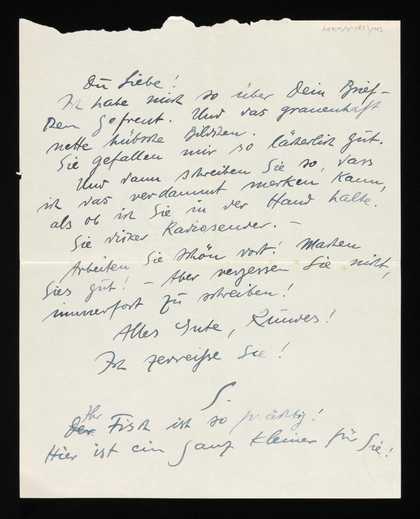 Du Liebe!
Ich habe mich so über Dein Brief-
chen gefreut. Und das grauenhaft
nette hübsche Bildchen.
Sie gefallen mir so lächerlich gut.
Und dann schreiben Sie so, dass
ich das verdammt merken kann,
als ob ich Sie in der Hand halte.
Sie dicker Radiosender. –
Arbeiten Sie schön dort! Machen
Sies gut! – Aber vergessen Sie nicht,
immerfort zu schreiben!
Alles Gute,
Ich zerreiße Sie!
S.
Ihr
Der Fisch ist so prächtig!
Hier ist ein ganz kleiner für Sie!